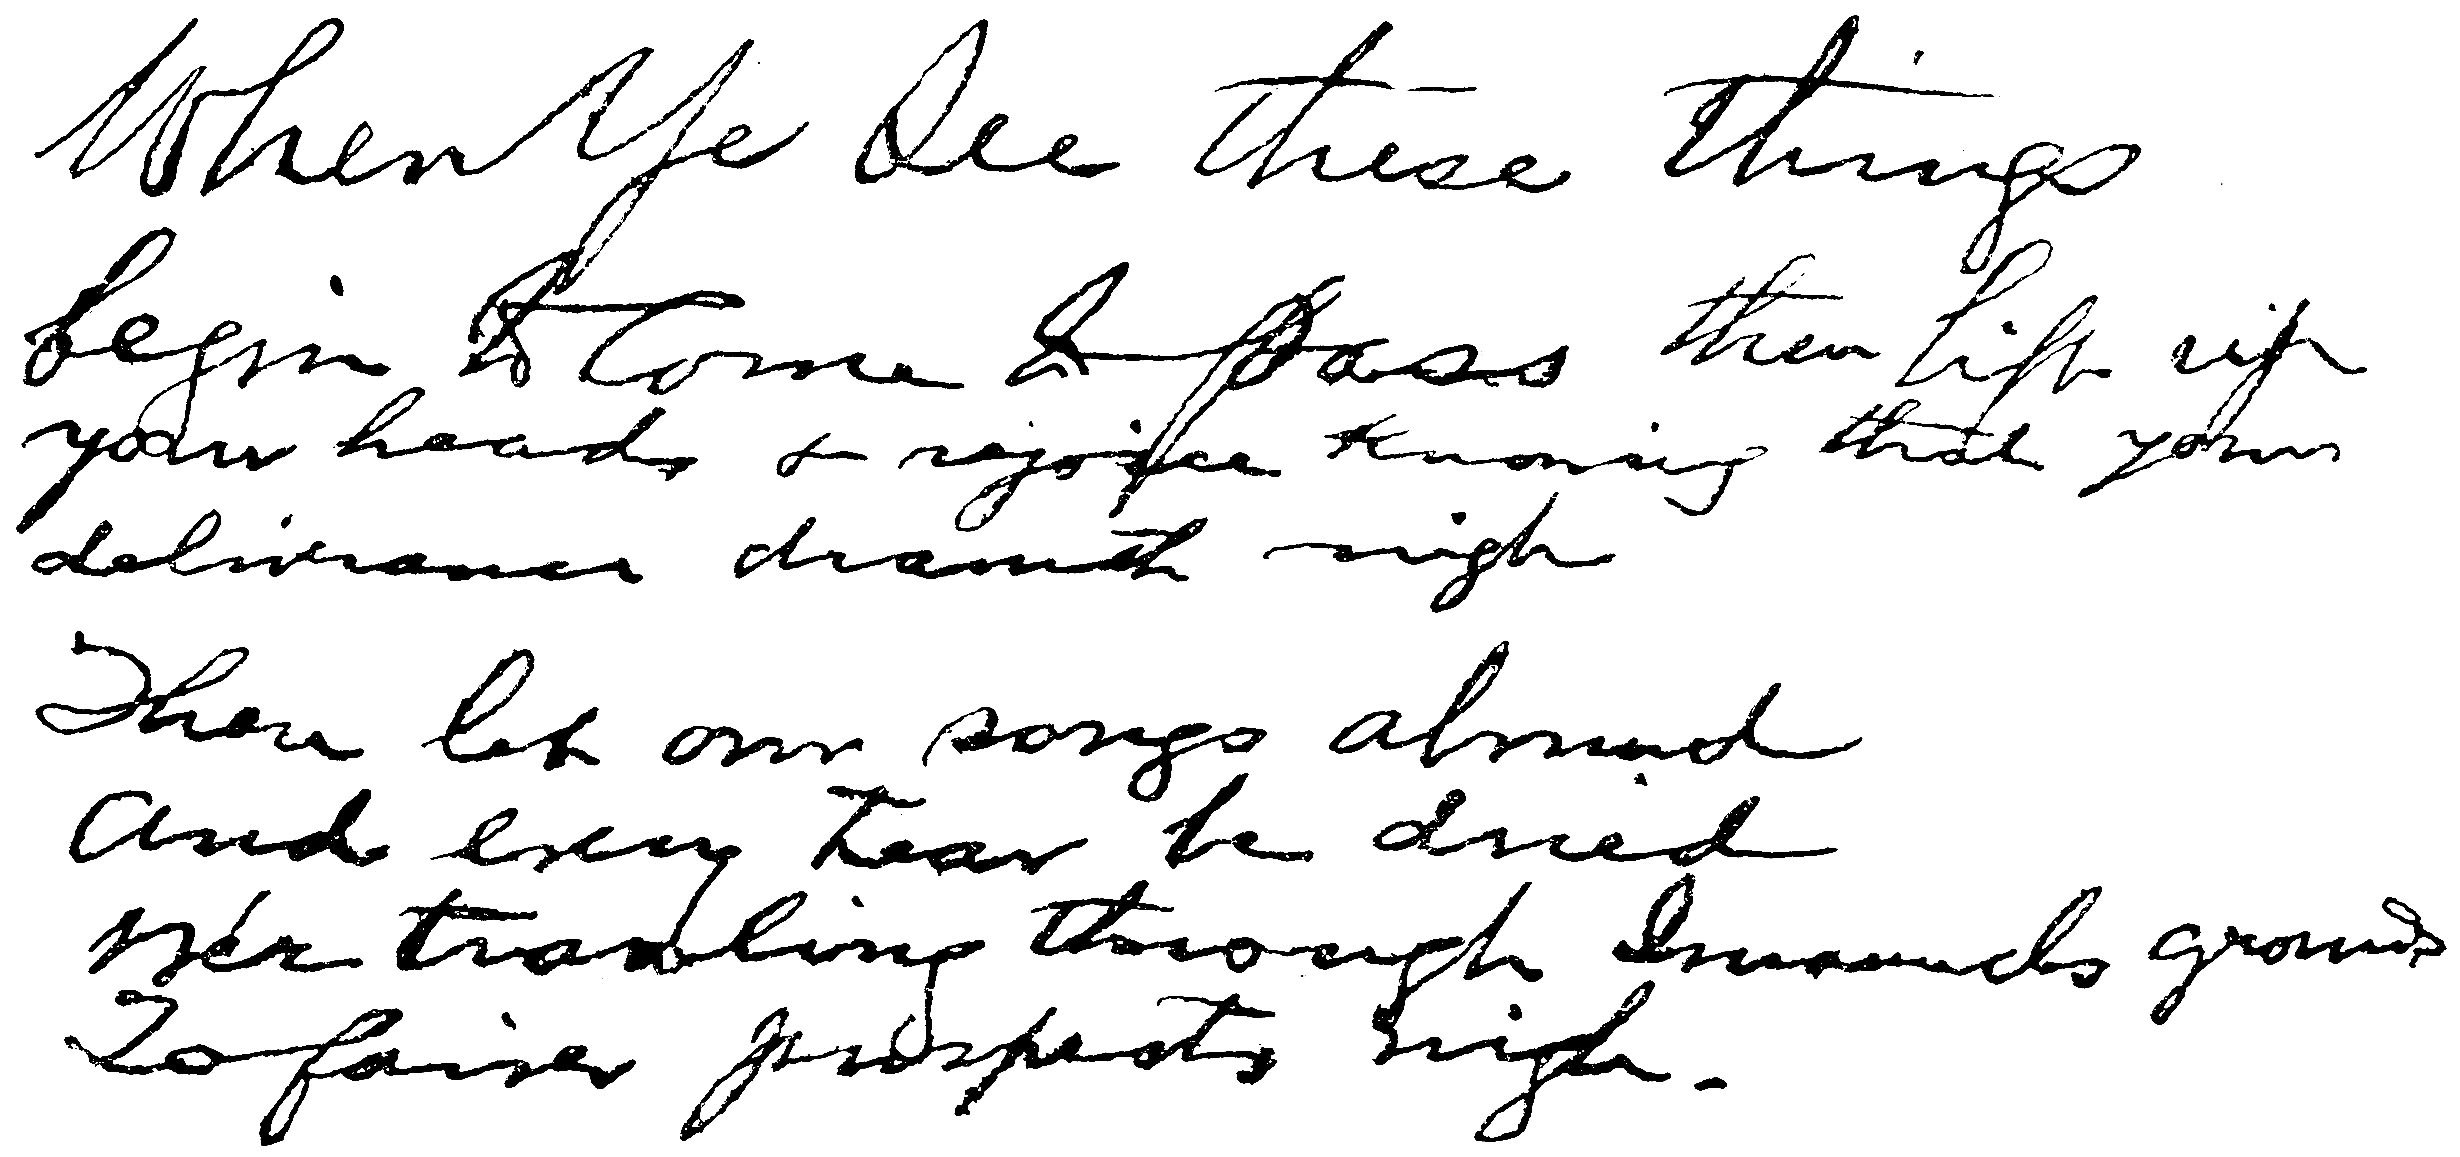 When Ye See these things
begin to Come to pass then lift up
your heads & rejoice knowing that your
deliverance draweth nigh
Then let our songs abound
And every tear be dried
We're traveling through Immanuels grounds
To fairer prospects nigh.